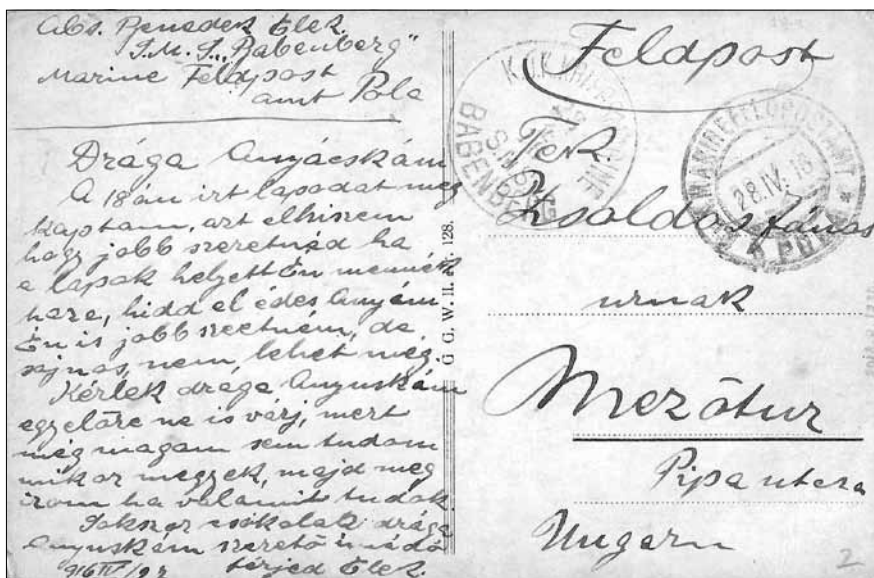 Abs. Benedek Elek.
S.M.S. „Babenberg"
Marine Feldpost
amt Pola
Drága Anyácskám
A 18án irt lapodat meg
kaptam, azt elhiszem
hogy jobb szeretnéd ha
a lapok helyett Én mennék
haza, hidd el édes Anyám
Én is jobb szeetném, de
sajnos, nem, lehet még.
Kérlek drága Anyuskám
egyelőre ne is várj, mert
még magam sem tudom
mikor megyek, majd meg
irom ha valamit tudok.
Sokszor csókolak drága
Anyuskám szerető imádó
férjed Elek.
G. G. W. II. Nr. 128.
Feldpost
K.U.K. KRIEGSMARINE
S.M.S.
BABENBERG
MARINEFELDPOSTAMT
28.IV.16
POLA
Tek.
Zsoldos János
urnak
Mezőtur
Pipa utcza
Ungarn
2